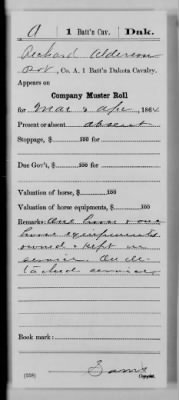 A | 1 Batt'n Cav. | Dak.
Richard Alderson
Pvt, Co. A, 1 Batt'n Dakota Cavalry.
Appears on
Company Muster Roll
for Mar & Apr, 1864
Present or absent absent
Stoppage, $ 100 for
Due Gov't, $ 100 for
Valuation of horse, $ 100
Valuation of horse equipments, $ 100
Remarks: One horse & one
horse equipments
owned & kept in
service. On de-
tached service
Book mark:
(358)
Copyist.